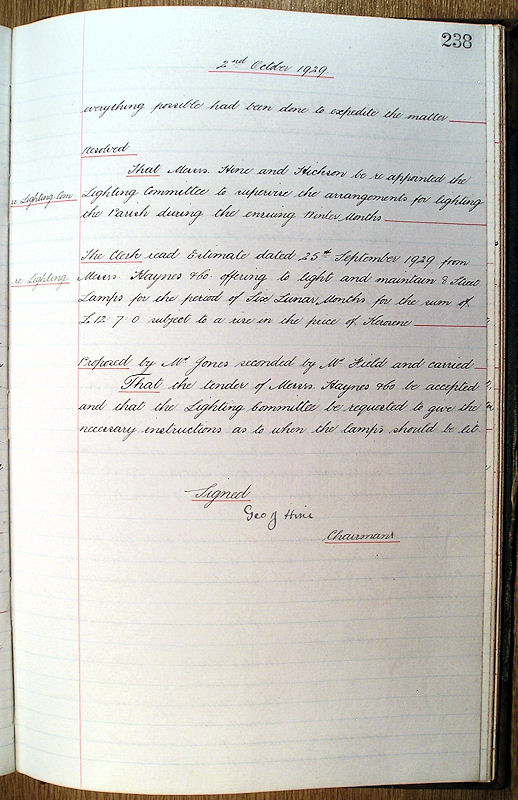 238
2nd October 1929
everything possible had been done to expedite the matter
Resolved
That Messrs. Hine and Hickson be re appointed the
re Lighting Com
Lighting Committee to supervise the arrangements for lighting
the Parish during the ensuing Winter Months
The Clerk read Estimate dated 25th September 1929 from
re Lighting
Messrs. Haynes & Co. offering to light and maintain 8 Street
Lamps for the period of Six Lunar Months for the sum of
£12. 7. 0 subject to a rise in the price of Kerosene
Proposed by Mr Jones seconded by Mr Field and carried
That the tender of Messrs. Haynes & Co be accepted
and that the Lighting Committee be requested to give the
necessary instructions as to when the lamps should be lit
Signed
Geo J Hine
Chairman